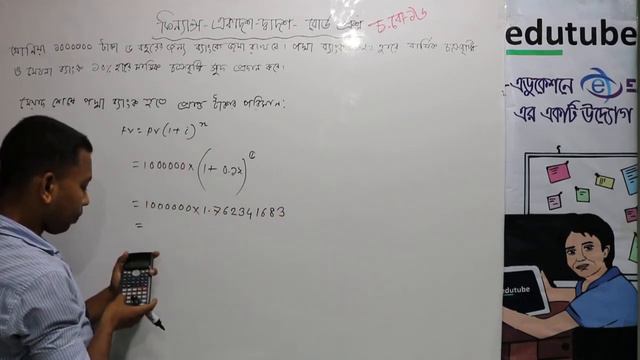 ফিন্যান্স - একাদশ-দ্বাদশ - বোর্ড প্রশ্ন চ.বো-১৬
1000000 টাকা ৫ বছরের জন্য ব্যাংকে জমা রাখবে। পদ্মা ব্যাংক হারে বার্ষিক চক্রবৃদ্ধি
ও মেঘনা ব্যাংক ১০% হারে চক্রবৃদ্ধি সুদ প্রদান করে।
মেয়াদ শেষে পদ্মা ব্যাংক হতে প্রাপ্ত টাকার পরিমাণ:
FV = PV(1+i)^n
= 1000000×(1+0.12)^৫
= 1000000×1.762341683
=
edutube
এডুকেশনে
এর একটি উদ্যোগ
edutube